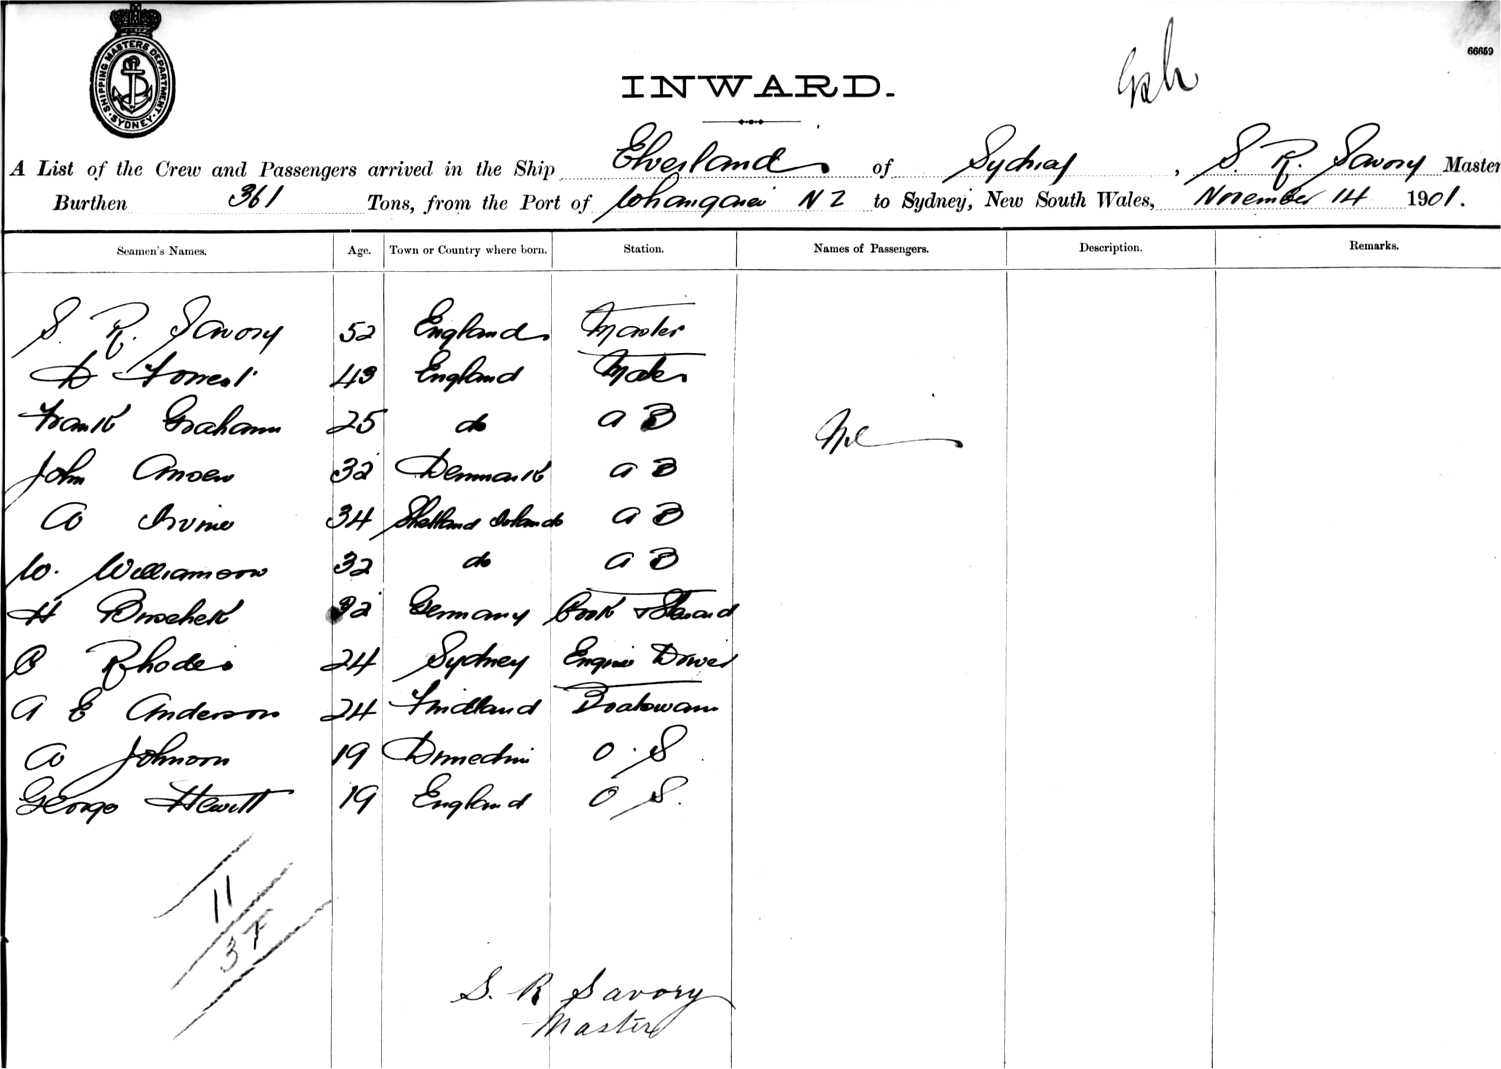 SHIPPING MASTERS DEPARTMENT
SYDNEY
66659
INWARD.
A List of the Crew and Passengers arrived in the Ship Elverland of Sydney, S. R. Savory Master
Burthen 361 Tons, from the Port of Whangarei N Z to Sydney, New South Wales, November 14 1901.
Seamen's Names. Age. Town or Country where born. Station. Names of Passengers. Description. Remarks.
S. R. Savory 52 England Master
D Forrest 43 England Mate
Frank Graham 25 do A B
John Ansen 32 Denmark A B
A Irvine 34 Shetland Islands A B
W. Williamson 32 do A B
H 32 Germany Cook & Steward
C Rhodes 24 Sydney Engine Driver
A E Anderson 24 Findland Boatswain
A Johnson 19 Dunedin O. S
George Hewitt 19 England O S.
Nil
11
37
S. R Savory
Master